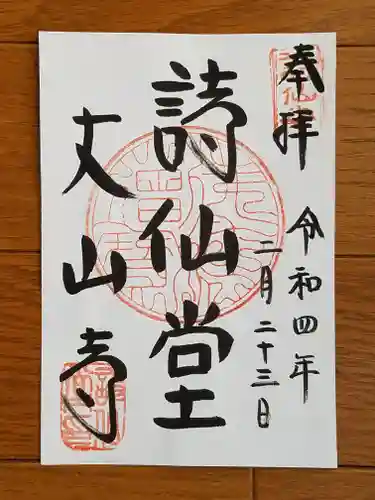 奉拝
令和四年
二月二十三日
詩仙堂
丈山寺